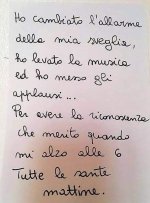 Ho cambiato l'allarme
della mia sveglia,
ho levato la musica
ed ho messo gli
applausi...
Per avere la riconoscenza
che merito quando
mi alzo alle 6
Tutte le sante
mattine.